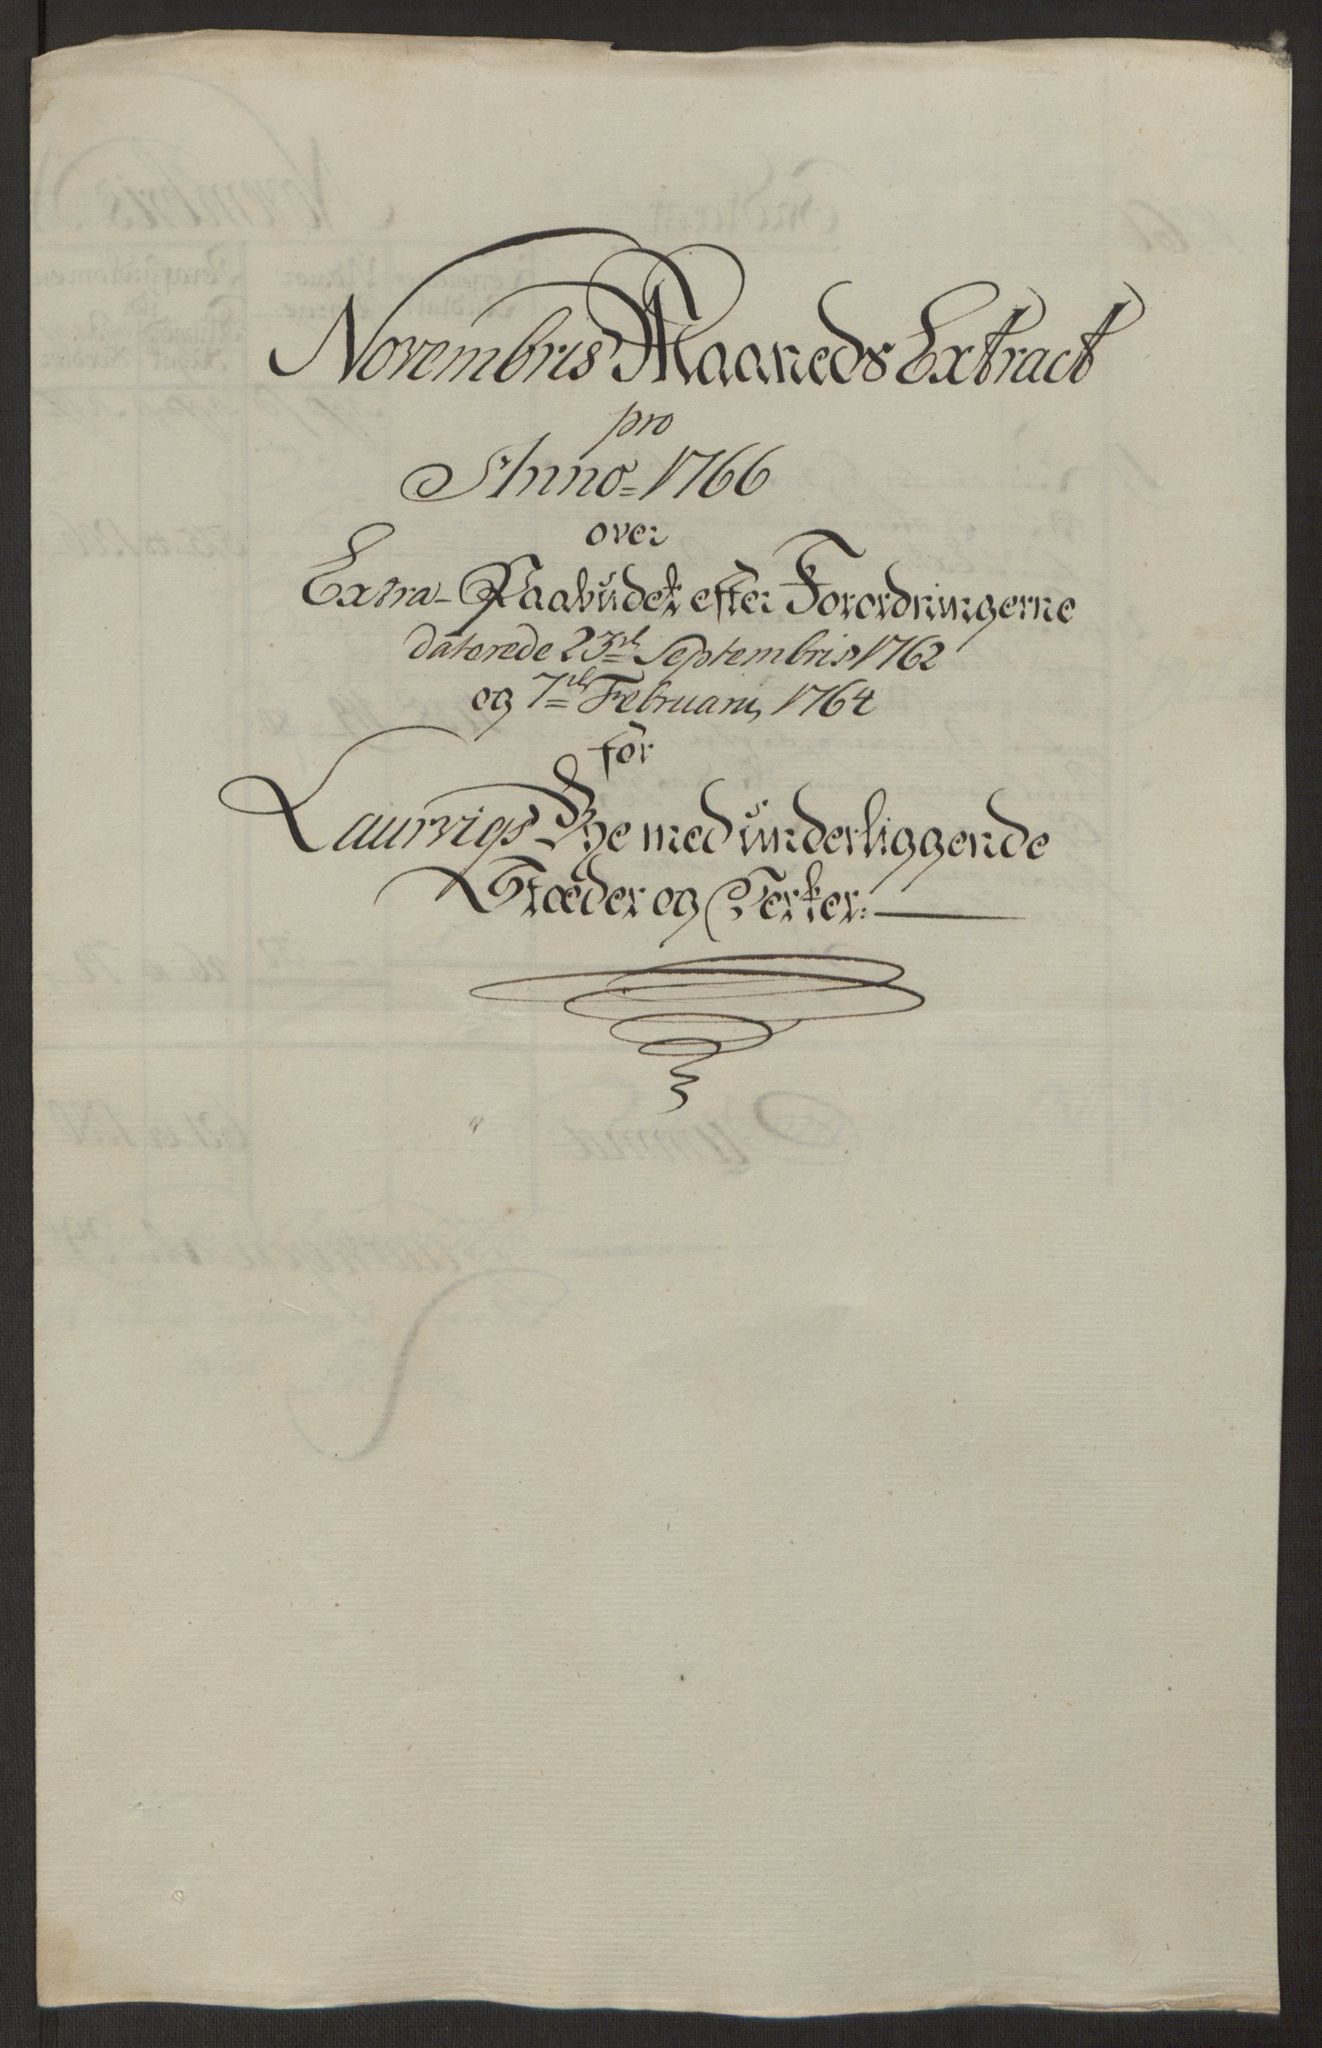 Novembris Maaneds Extract
pro
Anno 1766
over
Extra-Paabudet efter Forordningerne
daterede 23de Septembris 1762
og 7de Februarii 1764
for
Laurvigs Bye med underliggende
Stæder og